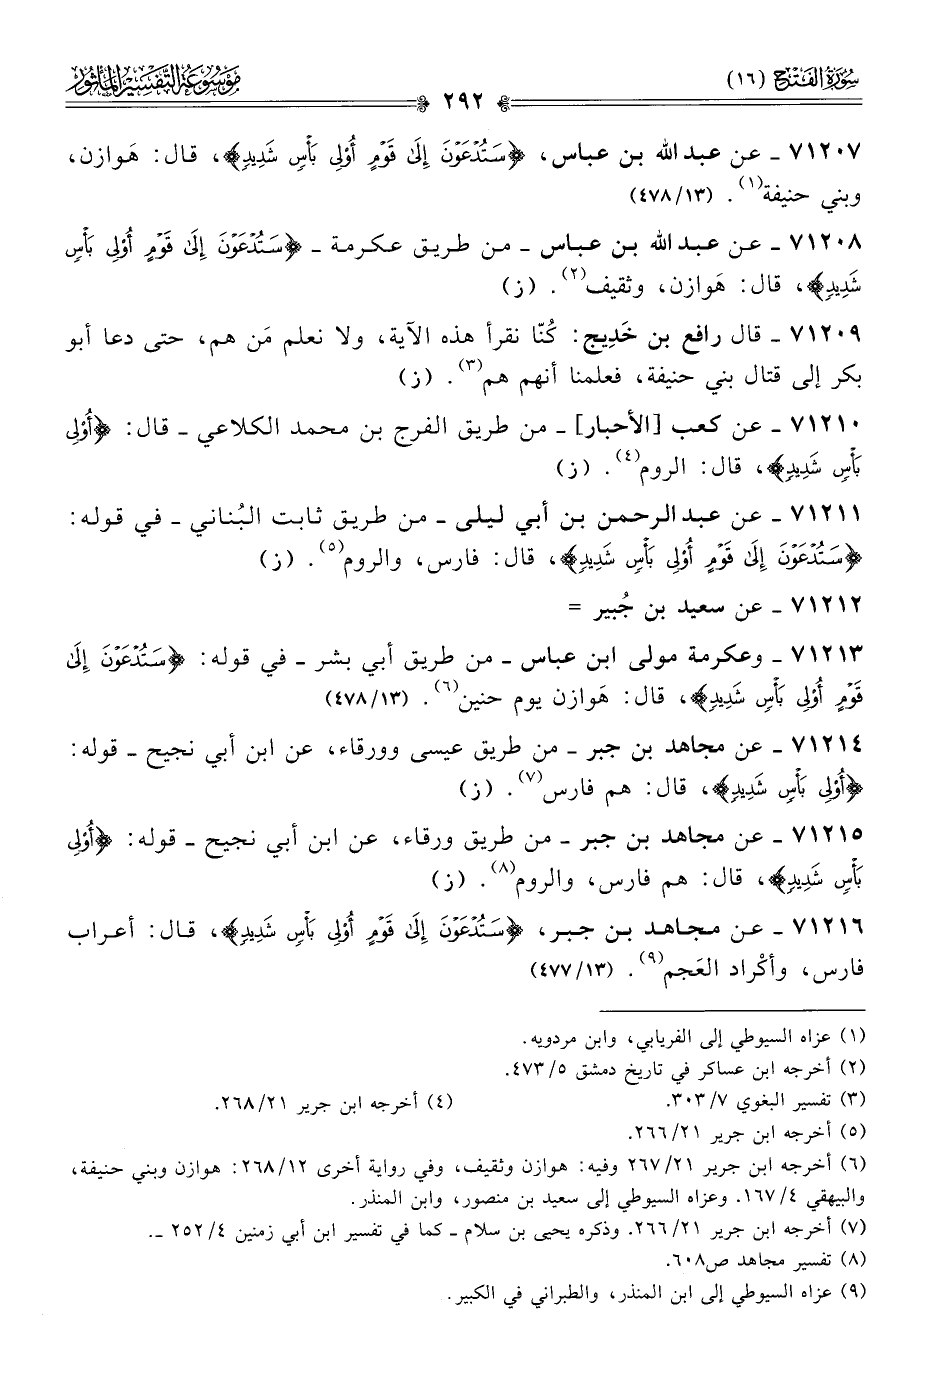 سورة الفتح (١٦)
موسوعة التفسير المأثور
٢٩٢
٧١٢٠٧ ـ عن عبد الله بن عباس، ﴿سَتُدْعَوْنَ إِلَىٰ قَوْمٍ أُوْلِي بَأْسٍ شَدِيدٍ﴾، قال: هَوازن،
وبني حنيفة(١). (٤٧٨/١٣)
٧١٢٠٨ ـ عن عبد الله بن عباس ـ من طريق عكرمة ـ ﴿سَتُدْعَوْنَ إِلَىٰ قَوْمٍ أُوْلِي بَأْسٍ
شَدِيدٍ﴾، قال: هَوازن، وثقيف(٢). (ز)
٧١٢٠٩ ـ قال رافع بن خَدِيج: كُنّا نقرأ هذه الآية، ولا نعلم مَن هم، حتى دعا أبو
بكر إلى قتال بني حنيفة، فعلمنا أنهم هم(٣). (ز)
٧١٢١٠ ـ عن كعب [الأحبار] ـ من طريق الفرج بن محمد الكلاعي ـ قال: ﴿أُوْلِي
بَأْسٍ شَدِيدٍ﴾، قال: الروم(٤). (ز)
٧١٢١١ ـ عن عبد الرحمن بن أبي ليلى ـ من طريق ثابت البُناني ـ في قوله:
﴿سَتُدْعَوْنَ إِلَىٰ قَوْمٍ أُوْلِي بَأْسٍ شَدِيدٍ﴾، قال: فارس، والروم(٥). (ز)
٧١٢١٢ ـ عن سعيد بن جُبير =
٧١٢١٣ ـ وعكرمة مولى ابن عباس ـ من طريق أبي بشر ـ في قوله: ﴿سَتُدْعَوْنَ إِلَىٰ
قَوْمٍ أُوْلِي بَأْسٍ شَدِيدٍ﴾، قال: هَوازن يوم حنين(٦). (٤٧٨/١٣)
٧١٢١٤ ـ عن مجاهد بن جبر ـ من طريق عيسى وورقاء، عن ابن أبي نجيح ـ قوله:
﴿أُوْلِي بَأْسٍ شَدِيدٍ﴾، قال: هم فارس(٧). (ز)
٧١٢١٥ ـ عن مجاهد بن جبر ـ من طريق ورقاء، عن ابن أبي نجيح ـ قوله: ﴿أُوْلِي
بَأْسٍ شَدِيدٍ﴾، قال: هم فارس، والروم(٨). (ز)
٧١٢١٦ ـ عن مجاهد بن جبر، ﴿سَتُدْعَوْنَ إِلَىٰ قَوْمٍ أُوْلِي بَأْسٍ شَدِيدٍ﴾، قال: أعراب
فارس، وأكْراد العَجم(٩). (٤٧٧/١٣)
(١) عزاه السيوطي إلى الفريابي، وابن مردويه.
(٢) أخرجه ابن عساكر في تاريخ دمشق ٤٧٣/٥.
(٣) تفسير البغوي ٣٠٣/٧. (٤) أخرجه ابن جرير ٢٦٨/٢١.
(٥) أخرجه ابن جرير ٢٦٦/٢١.
(٦) أخرجه ابن جرير ٢٦٧/٢١ وفيه: هوازن وثقيف، وفي رواية أخرى ٢٦٨/١٢: هوازن وبني حنيفة،
والبيهقي ١٦٧/٤. وعزاه السيوطي إلى سعيد بن منصور، وابن المنذر.
(٧) أخرجه ابن جرير ٢٦٦/٢١. وذكره يحيى بن سلام ـ كما في تفسير ابن أبي زمنين ٢٥٢/٤ ـ.
(٨) تفسير مجاهد ص٦٠٨.
(٩) عزاه السيوطي إلى ابن المنذر، والطبراني في الكبير.